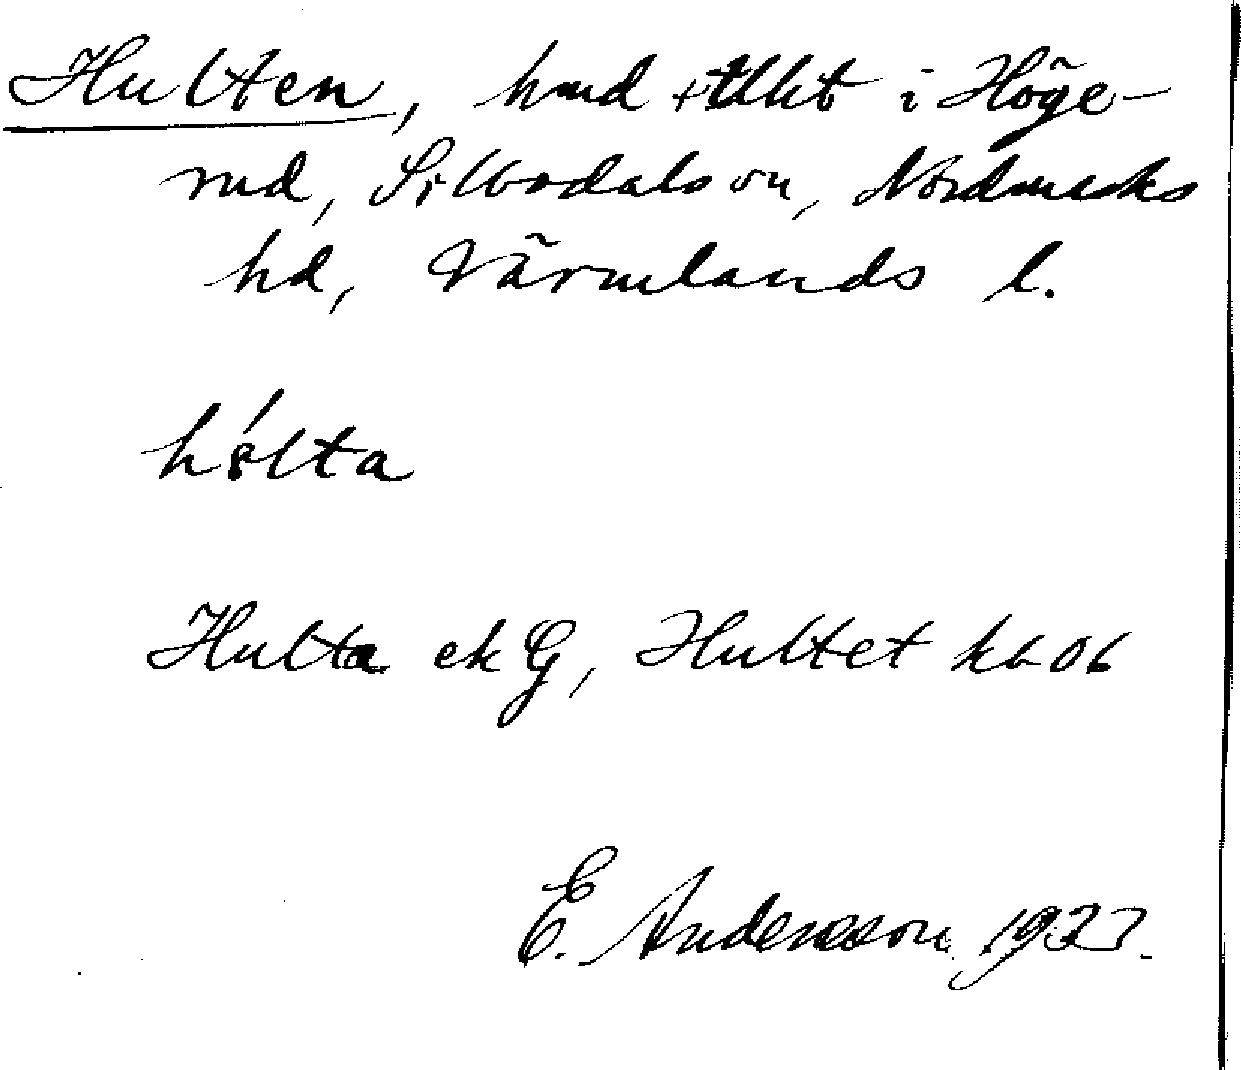 Hulten, hmd + tlkt i Höge-
rud, Silbodals sn, Nordmarks
hd, Värmlands l.
hólta
Hulta ek G, Hultet kb 06
E. Andersson 1927.